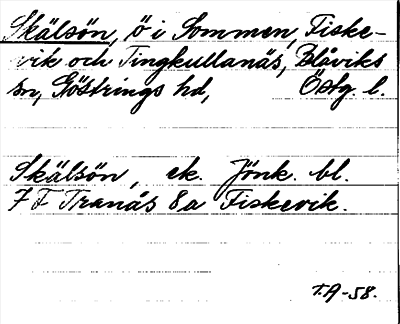 Skälsön, ö i Sommen, Fiske-
vik och Tingkullanäs, Blåviks
sn, Göstrings hd, Östg. l.
Skälsön, ek. Jönk. bl.
7 F Tranås 8a Fiskevik.
T.A-58.